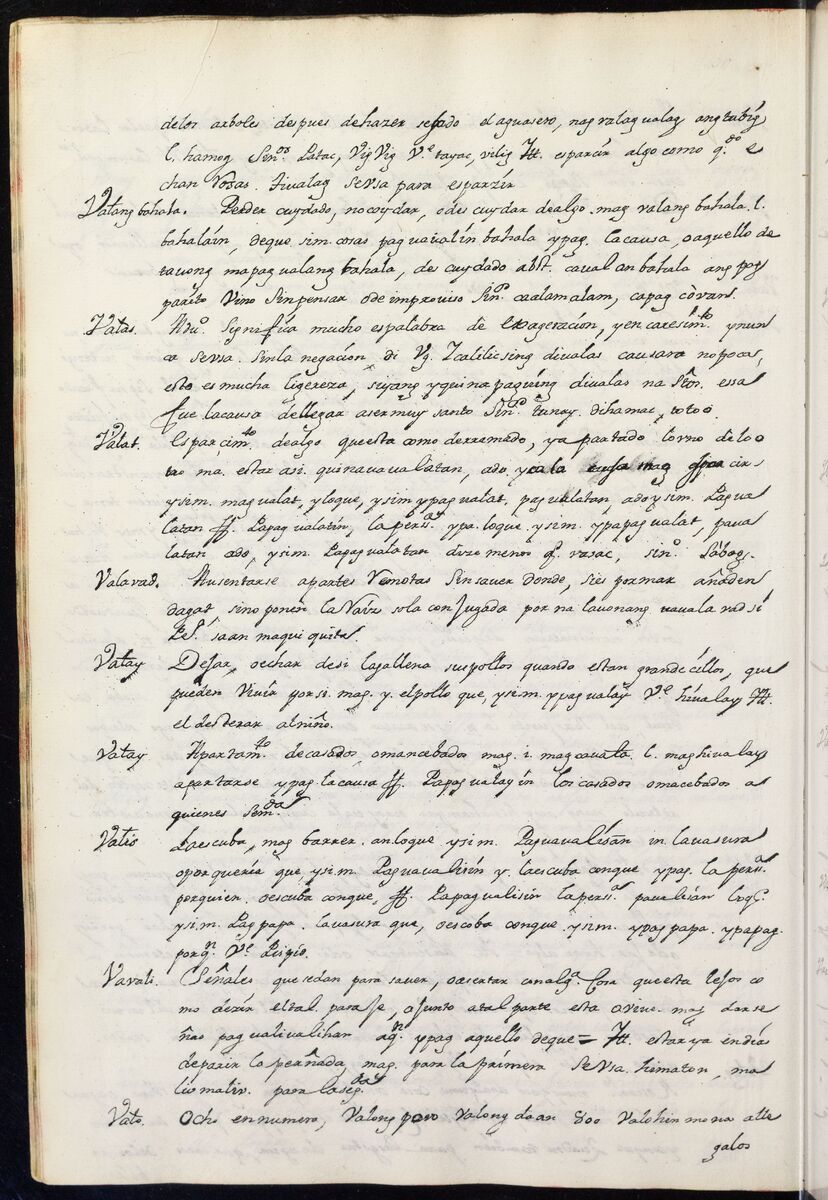 delos arboles despues dehazer sesado el aguasero, nag valag valag ang tubig
l. hamog Sin.os Latac, Vig Vig V.e tayac, vilig Itt. esparcir algo como q.do e
chan Rosas. tivalag se Vsa para esparzir
Valang bahala. Perder cuydado, nocoydar, o des cuydar dealgo. mag valang bahala. l.
bahaláin, deque, sim. cosas pag vavalin bahala ypag. lacausa, oaquello de
tauong mapag valang bahala, de cuydado abst. cavalan bahala ang pag
parito Vino Sinpensar ode improviso Sin.o cadamalam, capag còvan.
Valas. Adu.o Significa mucho es palabra de exageracion, y en caresim.to ynun
ca se Vsa. Sin la negacion di Vg. Icalilicsing divalas causara nopoca,
esto es mucha ligereza, siyang yquina paguing divalas na Stôn. essa
fue lacausa dellegar asermuy santo Sin.o tunay. dihamac, totoo.
Válat. Esparcim.to dealgo questa como derramado, ya partado lovno deloo
tro ma. estar asi. quinavavalatan, ado,
ysim. magvalat, yloque, ysim ypagvalat, pagvalatan, adoysim. Pagva
latan ff. Papag valatin, lapers.a ypa. loque. ysim. ypapagvalat, pava
latan ado, ysim. Papagvalatan dize menos q.e vasac, sin.o Sabog.
Valavad. Ausentarse apartes Remotas Sinsaver donde, sies pormar añaden
dagat, sino ponen laRaiz sola conjugada por na lavonang vavala vad si
Pe.o saan maqui quita.
Valay Dejar, oechar desi lagallena suspollos quando estan grandecillos, que
pueden Vivir porsi. mag. y. elpollo que, ysim. ypagvalay V.e hivalay Itt.
el desterar alniño.
Valay Apartam.to decasados, omancebados mag. i. magcavala. l. maghivalay
apartarse ypag. lacausa ff. Papagvalayin loscasados omacebados a
quienes Sem.da
Valis Laescuba, mag barrer. anloque ysim. Pagvavalisan in. lavasura
oporqueria que, ysim. Pagvavalisin y. laescuba conque ypag. la pers.a
porquien. oescuba conque, ff. Papagvalisin lapers.a pavalisan lug.o
ysim. Pagpapa. lavasura que, oescoba conque. ysim. ypagpapa. ypapag.
porq.n V.e Pispis.
Vavali. Señales quesedan para saver, oasertar conalg.a Cosa questa lejos co
mo dezir eltal. paraje, ojunto atal parte esta ovive. mag. darse
ñas pagvalivalihan aq.n ypag aquello deque= Itt. estar ya endias
deparir la preñada, mag. para la primera se Vsa. himaton, ma
para laseg.da
Valo. Ocho ennumero, Valong povo Valong daan 800 Valohin mo na alle
galos